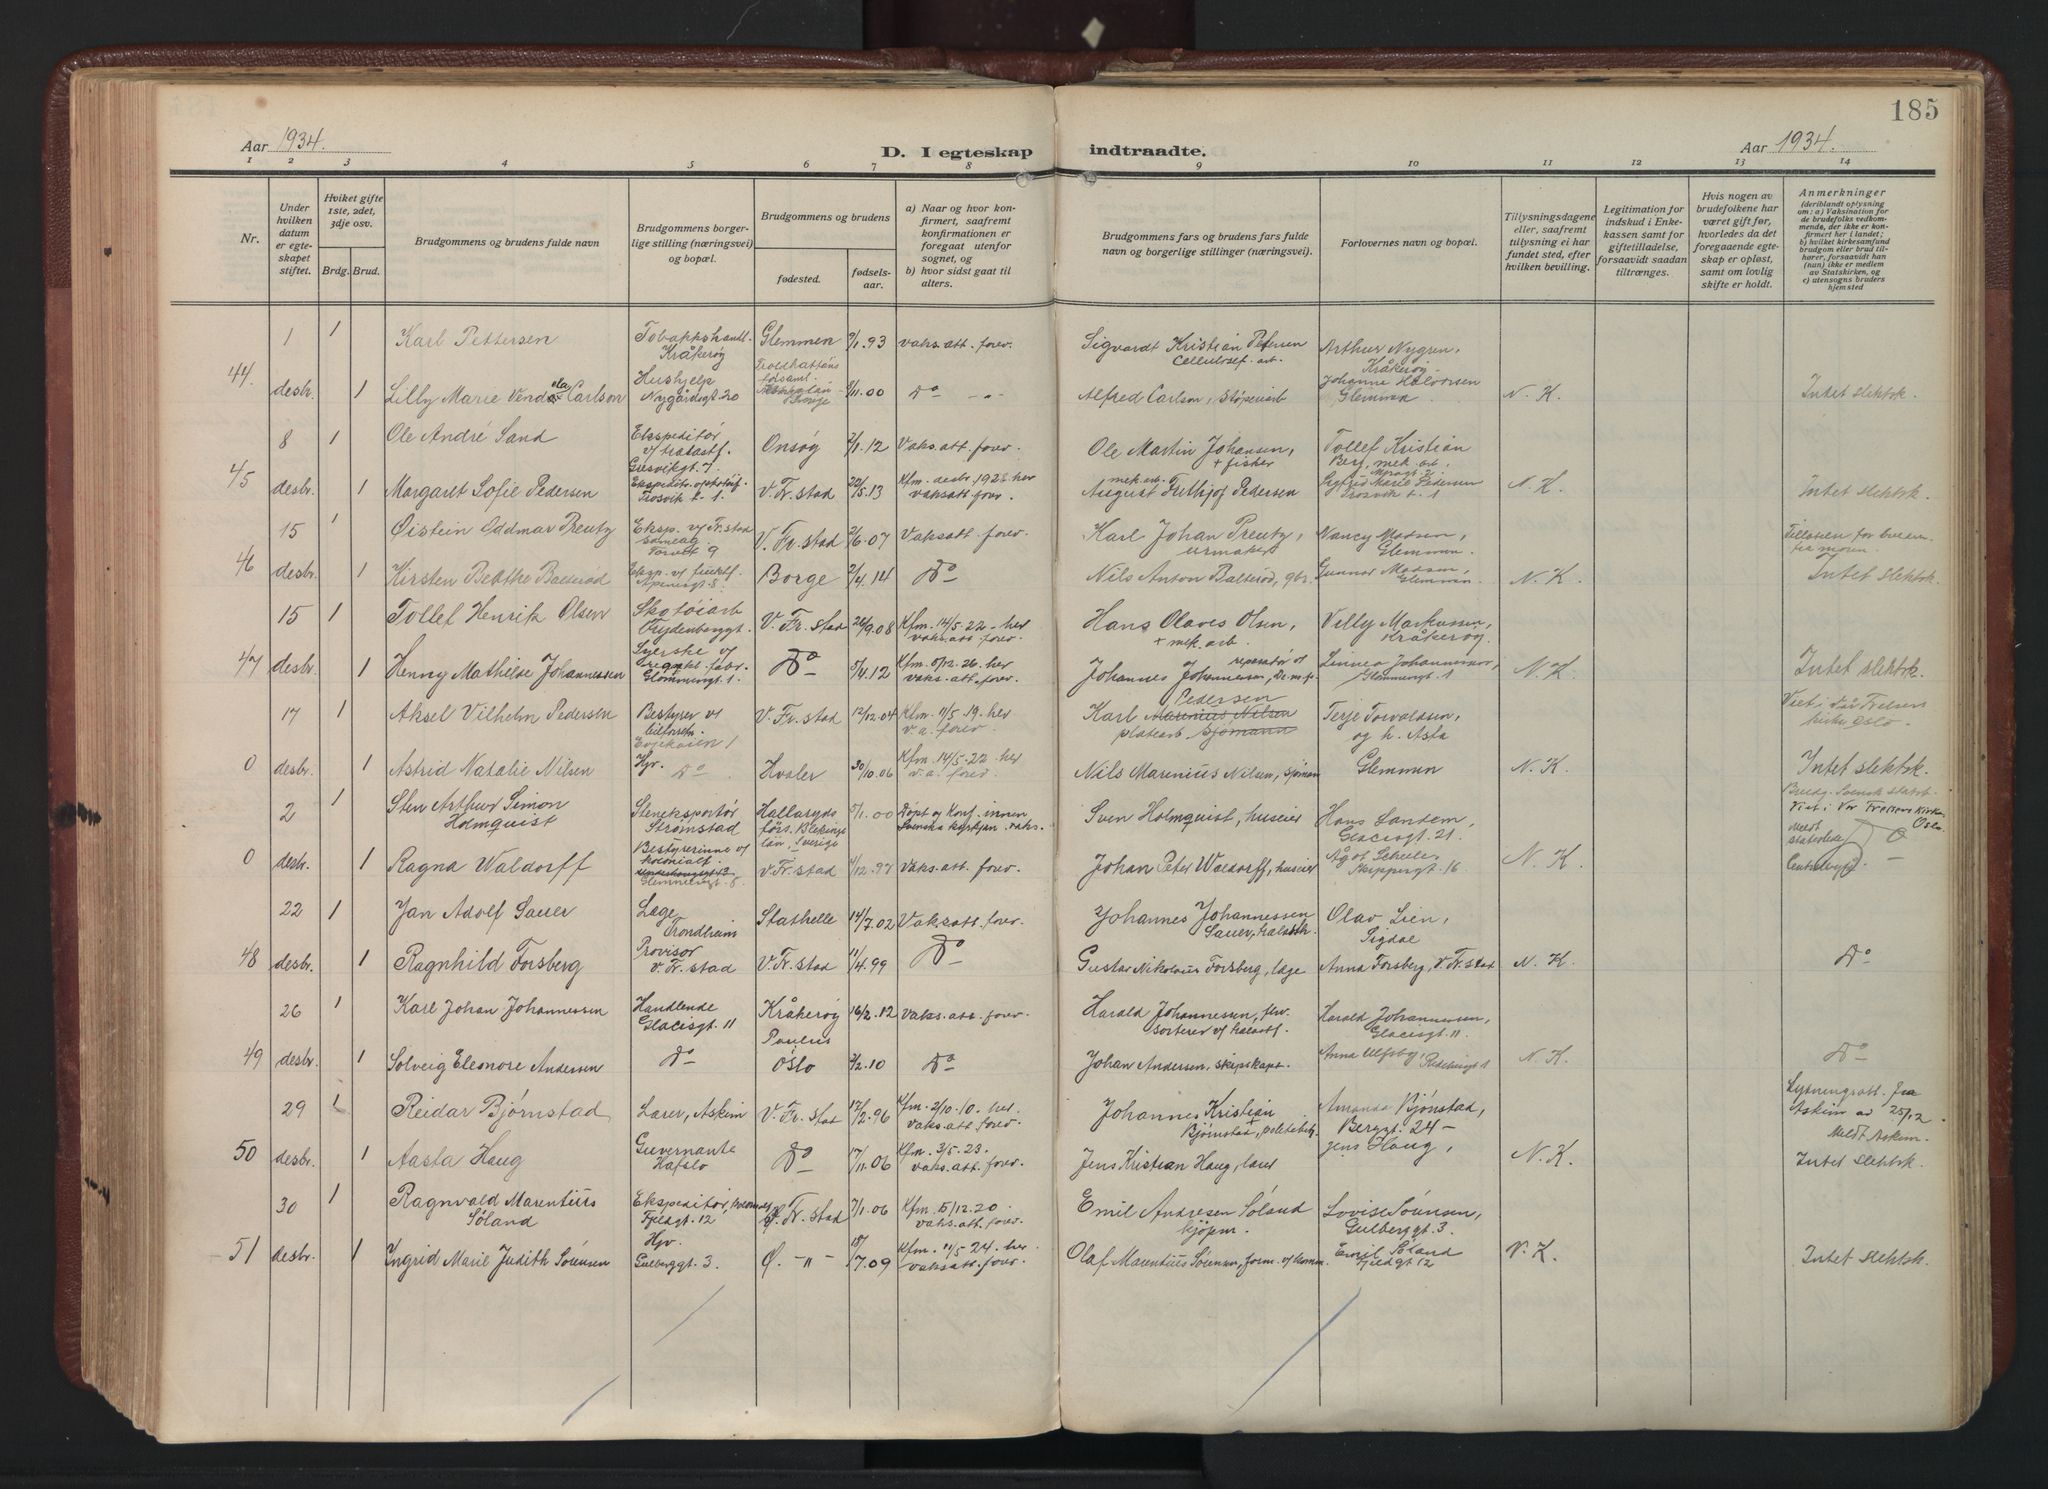 185
Aar 1934.
D. I egteskap
indtraadte.
Aar 1934.
1 2 3 4 5 6 7 8 9 10 11 12 13 14
Nr.
Under hvilken datum er egteskapet stiftet.
Hviket gifte 1ste, 2det, 3dje osv.
Brdg. Brud.
Brudgommens og brudens fulde navn
Brudgommens borgerlige stilling (næringsvei) og bopæl.
Brudgommens og brudens
fødested.
fødselsaar.
a) Naar og hvor konfirmert, saafremt konfirmationen er foregaat utenfor sognet, og
b) hvor sidst gaat til alters.
Brudgommens fars og brudens fars fulde navn og borgerlige stillinger (næringsvei).
Forlovernes navn og bopæl.
Tillysningsdagene eller, saafremt tillysning ei har fundet sted, efter hvilken bevilling.
Legitimation for indskud i Enkekassen samt for giftetilladelse, forsaavidt saadan tiltrænges.
Hvis nogen av brudefolkene har været gift før, hvorledes da det foregaaende egteskap er opløst, samt om lovlig skifte er holdt.
Anmerkninger (deriblandt oplysning om: a) Vaksination for de brudefolks vedkommende, der ikke er konfirmert her i landet; b) hvilket kirkesamfund brudgom eller brud tilhører, forsaavidt han (hun) ikke er medlem av Statskirken, og c) utensogns bruders hjemsted
44. 1 1 Karl Pettersen Tobakkshandl. Kråkerøy Glemmen 9/1.93 vaks.att. forev. Sigvardt Kristian Petersen Cellulosef. arb. Arthur Nygren, Kråkerøy
desbr. 1 Lilly Marie Vendela Carlson Hushjelp Nygårdsgt. 20 9/11.00 Do Alfred Carlson, støperiarb Johanne Halvorsen Glemmen N. K. Intet slektsk.
8 1 Ole André Sand Ekspeditør v/ tratastf. Gresvikgt. 7 Onsøy 2/1.12 Vaks.att. forev. Ole Martin Johansen, + fisker Tollef Kristian Berg, mek. arb.
45 desbr. 1 Margaret Sofie Pedersen Trosvik t. 1 V. Fr.stad 22/5.13 Kfm. desbr. 1928 her vaksatt forev. mek. arb. August Frithjof Pedersen Sigfrid Marie Pedersen Trosvik t. 1 N. K. Intet slektsk.
15 1 Øistein Oddmar Preutz Eksp. v/ Fr.stad samlag Torvet 9 V. Fr.stad 2/6.07 Vaksatt. forev. Karl Johan Preutz, urmaker Nancy Madsen, Glemmen. fra moren.
46 desbr. 1 Kirsten Bekthe Balterød Apenesgt. 8 Borge 2/4.14 Do Nils Anton Balterød, gbr. Gunnar Madsen, Glemmen N. K. Intet slektsk.
15 1 Tollef Henrik Olsen Skotøiarb Frydenberggt. V. Fr.stad 26/9.08 Kfm. 14/5.22 - her vaks.att. forev. Hans Olaves Olsen, + mek. arb. Villy Markussen, Kråkerøy
47 desbr. 1 Henny Mathilde Johannessen Syerske v/ Glommengt. 1. Do 5/4.12 Kfm. 5/12.26. her vaks. att. forev. Johannes Johannessen, reparatør Linnea Johannessen, Glommengt. 1 N. K. Intet slektsk.
17 1 Aksel Vilhelm Pedersen Bestyrer v/ bilforretn. V. Fr.stad 12/12.04 Kfm. 11/5.19. her v. a. forev. Pedersen Karl Marenius Nilsen platearb sjømann Terje Torvaldsen, og h. Asta Viet i Vår Frelsers kirke Oslo.
0 desbr. 1 Astrid Natalie Nilsen Hjv. Do Hvaler 30/10.06 Kfm. 14/5.22 her v.a. forev. Nils Marenius Nilsen, sjømann Glemmen N. K. Intet slektsk.
2 1 Sten Arthur Simon Holmquist Steneksportør Strømstad Hallaryds förs. Blekinge län, Sverige 5/1.00 Døpt og Konf. innen Svenska kyrkjan. vaks. Sven Holmquist, huseier Hans Sandem, Glacisgt. 21. Brudg. Svensk statsb. Viet i Vor Frelsers Kirke Oslo.
0 desbr. 1 Ragna Waldorff Bestyrerinne v/ kolonialf. Glemmengt. 8. v. Fr.stad 1/12.97 Vaks.att. forev. Johan Peter Waldorff, huseier Skippergt. 16 N. K. Meldt
22 1 Jan Adolf Sauer Læge Trondheim Stathelle 14/7.02 Vaksatt. forev. Johannes Johannessen Sauer, Olav Lien, Sigdal
48 desbr. 1 Ragnhild Forsberg Provisor v. Fr.stad V. Fr.stad 11/4.99 Do Gustav Nikolaus Forsberg, læge Anna Forsberg, V. Fr.stad N. K. Do
26 1 Karl Johan Johannessen Handlende Glacisgt. 11 Kråkerøy 16/2.12 vaks.att. forev. Harald Johannessen, sorterer v/ Harald Johannessen, Glacisgt. 11.
49 desbr. 1 Solveig Eleonore Andersen Do Paulus Oslo 2/2.10 Do Johan Andersen, skipskapt. Anna Ulfsby, N. K. Do
29 1 Reidar Bjørnstad Lærer, Askim V. Fr.stad 17/2.96 Kfm. 2/10.10. her vaks.att. forev. Johannes Kristian Bjørnstad, + politibetj. Amanda Bjønstad, Berggt. 24 - Lysningsatt. fra Askim av 25/12 Meldt Askim.
50 desbr. 1 Aasta Haug Guvernante Hafslo Do 17/11.06 Kfm. 3/5.23. vaks.att. forev. Jens Kristian Haug, lærer Jens Haug, N. K. Intet slektsk.
30 1 Ragnvald Marentius Søland Ekspeditør, Fjeldgt. 12 Fr.stad 7/1.06 Kfm. 5/12.20 vaks.att. forev. Emil Andresen Søland kjøpm. Lovise Sørensen, Gulberggt. 3.
51 desbr. 1 Ingrid Marie Judith Sørensen Hjv. Gulberggt. 3. Ø. -"- 18/7.09 Kfm. 11/5.24. her. vaksatt. forev. Olaf Marentius Sørensen, form. v/ komm. Emil Søland Fjeldgt 12 N. K. Intet slektsk.